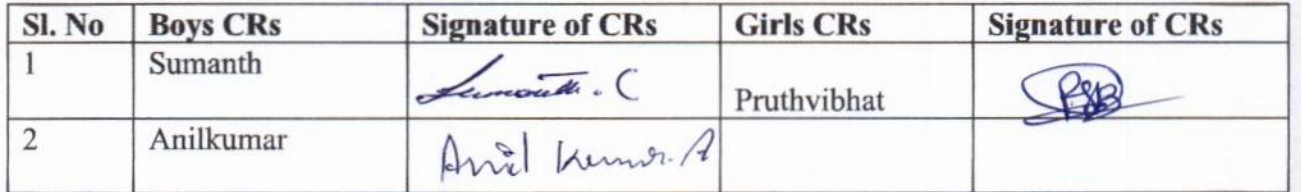 Sl. No Boys CRs Signature of CRs Girls CRs Signature of CRs
1 Sumanth Sumanth. C Pruthvibhat
2 Anilkumar Anil Kumar. A